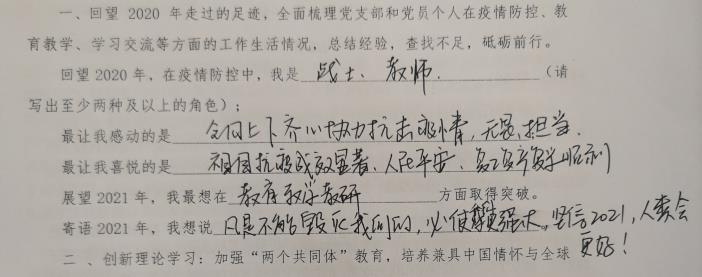 一、回望 2020 年走过的足迹，全面梳理党支部和党员个人在疫情防控、教
育教学、学习交流等方面的工作生活情况，总结经验，查找不足，砥砺前行。
回望2020年，在疫情防控中，我是 战士、教师. （请
写出至少两种及以上的角色）；
最让我感动的是 全何上下齐心协力抗击疫情，无畏、担当.
最让我喜悦的是 祖国抗疫成效显著、人民平安、复工复产复学顺利
展望2021年，我最想在 教育教学教研 方面取得突破。
寄语2021年，我想说 凡是不能毁灭我们的，必使更强大。坚信2021，人类会
更好！
二、创新理论学习：加强“两个共同体”教育，培养兼具中国情怀与全球